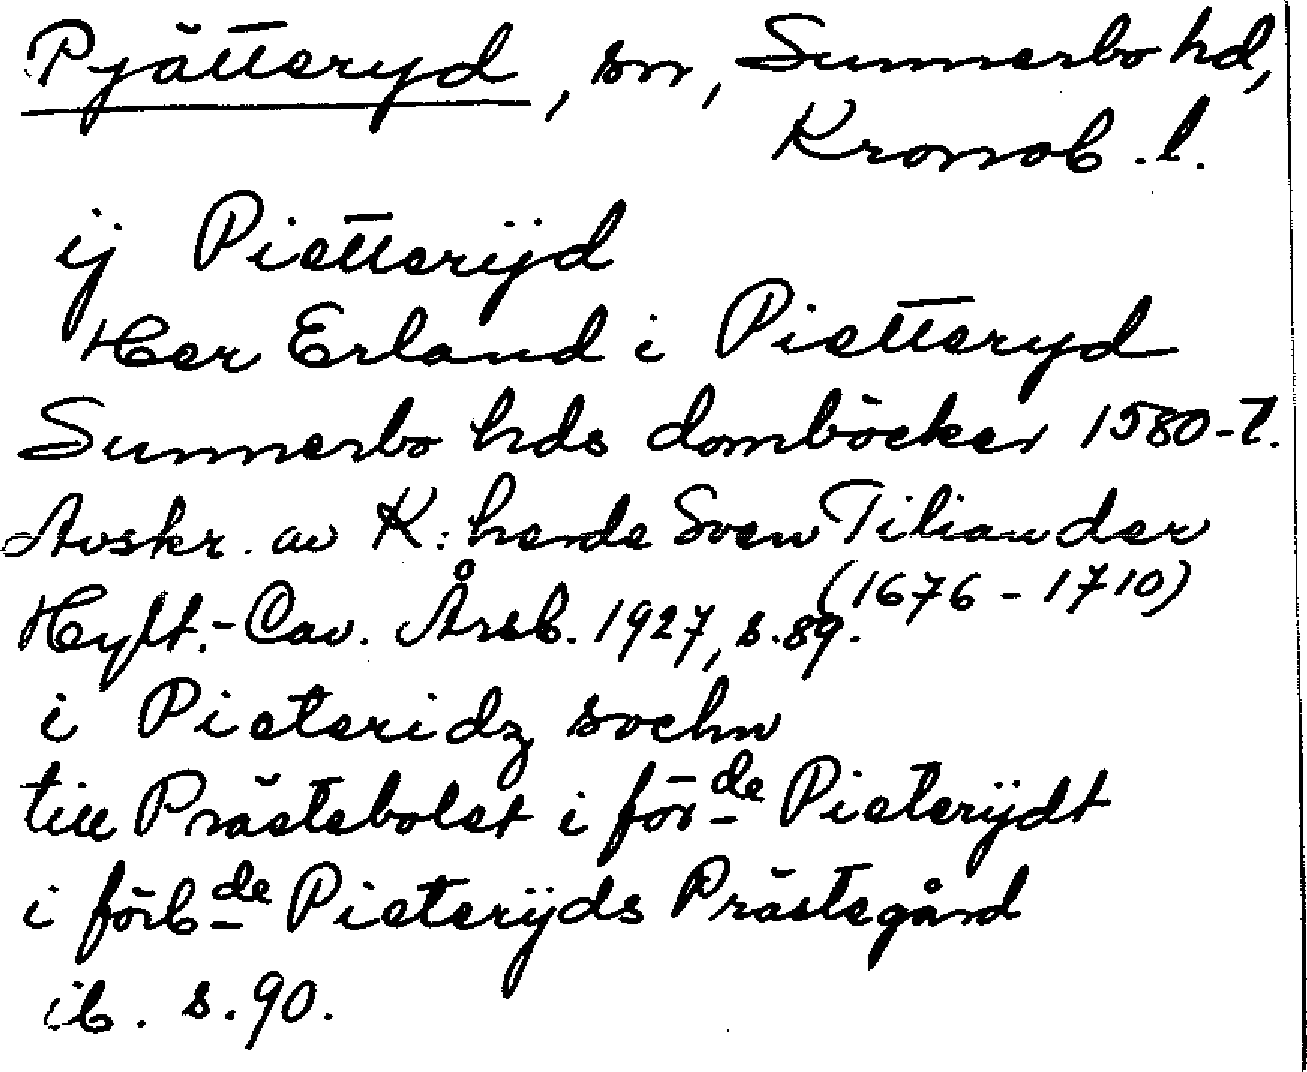 Pjätteryd, sn, Sunnerbo hd,
Kronob. l.
ij Pietterijd
Her Erland i Pietteryd
Sunnerbo hds domböcker 1580-t.
Avskr. av K:herde Sven Tiliander
(1676 - 1710)
Hylt.-Cav. Årsb. 1927, s.89.
i Pieteridz sochn
till Prästebolet i förde Pieterÿdt
i förbde Pieterÿds Prästegård
ib. s.90.